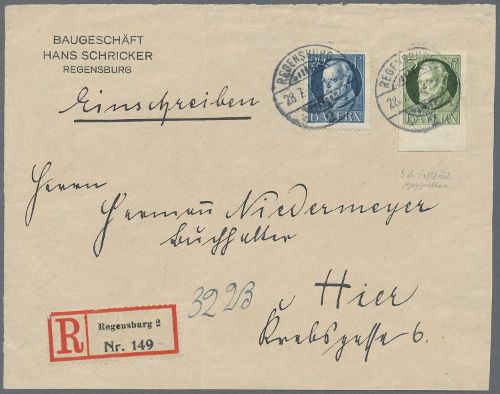 BAUGESCHÄFT
HANS SCHRICKER
REGENSBURG
Einschreiben
REGENSBURG
28.7.
BAYERN
REGENSBURG
28.
BAYERN
Herrn
Hermann Niedermeyer
Buchhalter
3223
Hier
Krebsgasse 6.
R
Regensburg 2
Nr. 149